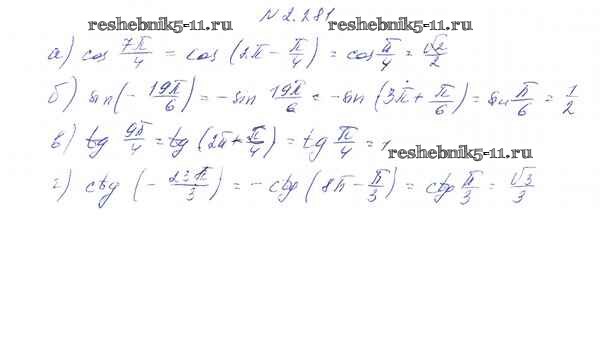 №2.281
reshebnik5-11.ru reshebnik5-11.ru
а) cos 7π/4 = cos (2π - π/4) = cos π/4 = √2/2
б) sin (- 19π/6) = - sin 19π/6 = - sin (3π + π/6) = sin π/6 = 1/2
в) tg 9π/4 = tg (2π + π/4) = tg π/4 = 1
reshebnik5-11.ru
г) ctg (- 23π/3) = - ctg (8π - π/3) = ctg π/3 = √3/3